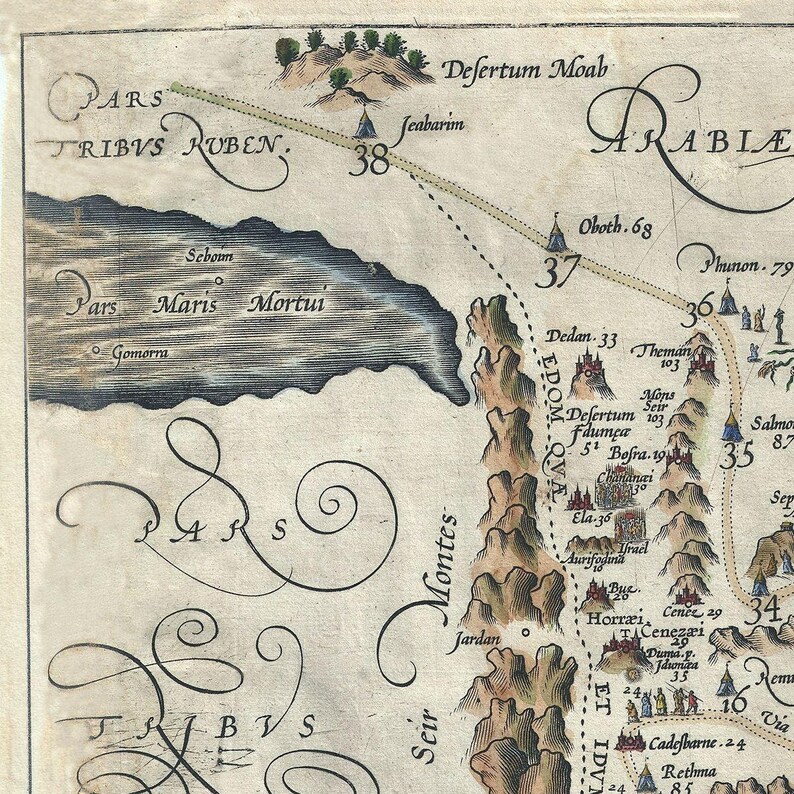 Desertum Moab
PARS
TRIBVS RUBEN.
Jeabarim
38
ARABIÆ
Oboth. 68
37
Phunon. 79
36
Seboim
Pars Maris Mortui
Gomorra
Dedan. 33
Theman
103
EDOM QVÆ
Desertum
Idumeæ
51
Mons
Seir
103
Salmo
87
35
Bosra. 19
Chananæi
30
Ela. 36
Israel
Aurifodina
10
PARS
Montes
Seir
Buz.
20
Cenez 29
34
Horræi.
Cenezæi
29
Duma. p.
Idumæa
35
Jardan
24
16
Via
TRIBVS
ET IDVM
Cadesbarne. 24
Rethma
85
24